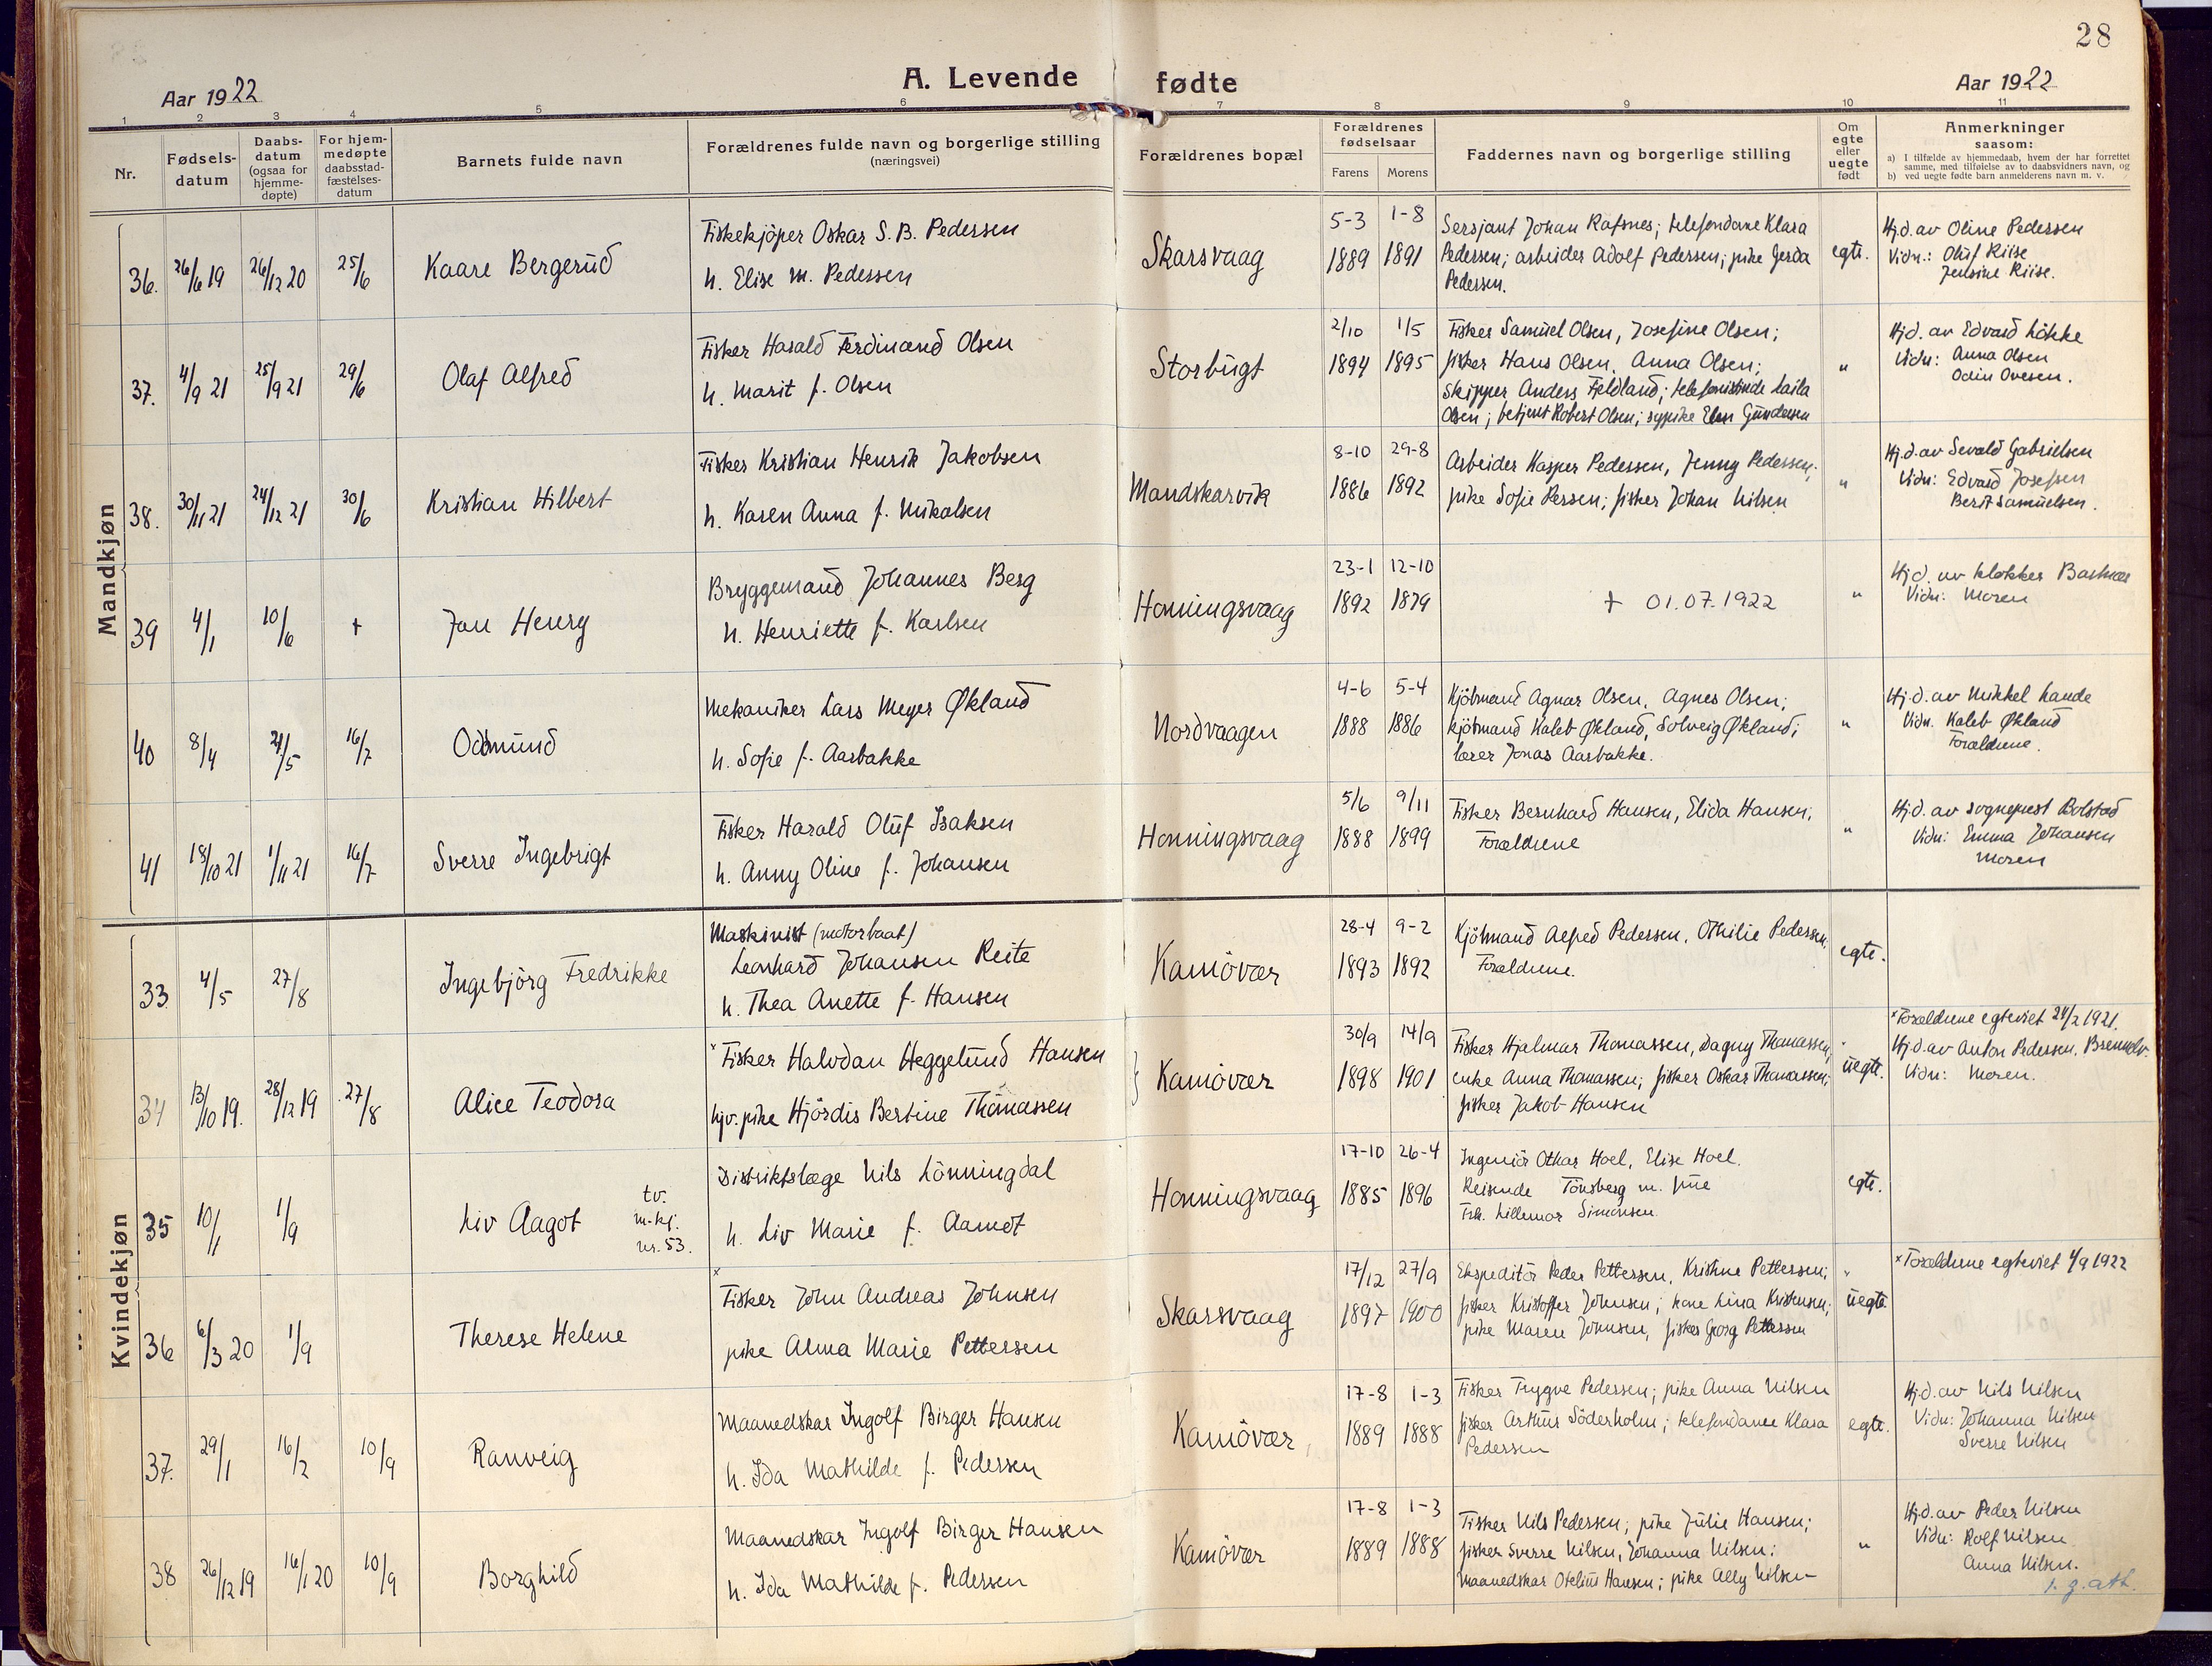 28
Aar 1922
A. Levende fødte
Aar 1922
1 2 3 4 5 6 7 8 9 10 11
Nr.
Fødsels-
datum
Daabs-
datum
(ogsaa for
hjemme-
døpte)
For hjem-
medøpte
daabsstad-
fæstelses-
datum
Barnets fulde navn
Forældrenes fulde navn og borgerlige stilling
(næringsvei)
Forældrenes bopæl
Forældrenes
fødselsaar
Farens Morens
Faddernes navn og borgerlige stilling
Om
egte
eller
uegte
født
Anmerkninger
saasom:
a) I tilfælde av hjemmedaab, hvem der har forrettet
samme, med tilføielse av to daabsvidners navn, og
b) ved uegte fødte barn anmelderens navn m. v.
Mandkjøn
36. 26/6 19 26/12 20 25/6
Kaare Bergerud
Fiskekjöper Oskar S. B. Pedersen
h. Elise M. Pedersen
Skarsvaag
5-3 1-8
1889 1891
Sersjant Johan Rafsnes; telefondame Klara
Pedersen; arbeider Adolf Pedersen; pike Gerda
Pedersen.
egte.
Hj.d. av Oline Pedersen
Vidn.: Oluf Riise
Jensine Riise.
37. 4/9 21 25/9 21 29/6
Olaf Alfred
Fisker Harald Ferdinand Olsen
h. Marit f. Olsen
Storbugt
2/10 1/5
1894 1895
Fisker Samuel Olsen, Josefine Olsen;
fisker Hans Olsen, Anna Olsen;
Skipper Anders Fjeldland; telefonistinde Laila
Olsen; betjent Robert Olsen; sypike Elen Gundersen
"
Hj.d. av Edvard Lökke
Vidn: Anna Olsen
Odin Ovesen.
38. 30/11 21 24/12 21 30/6
Kristian Hilbert
Fisker Kristian Henrik Jakobsen
h. Karen Anna f. Mikalsen
Mandskarvik
8-10 29-8
1886 1892
Arbeider Kasper Pedersen, Jenny Pedersen;
pike Sofie Persen; fisker Johan Nilsen
"
Hj.d. av Sevald Gabrielsen
Vidn: Edvard Josefsen
Berit Samuelsen.
39 4/1 10/6 +
Jan Henry
Bryggemand Johannes Berg
h. Henriette f. Karlsen
Honningsvaag
23-1 12-10
1892 1879
+ 01.07.1922
"
Hj.d. av klokker
Vidn: Moren
40 8/4 21/5 16/7
Oddmund
Mekaniker Lars Meyer Økland
h. Sofie f. Aarbakke
Nordvaagen
4-6 5-4
1888 1886
Kjöbmand Agnar Olsen, Agnes Olsen;
kjöbmand Kaleb Økland, Solveig Økland;
lærer Jonas Aarbakke.
"
Hj.d. av Mikkel Lande
Vidn. Kaleb Økland
Forældrene.
41 18/10 21 1/11 21 16/7
Sverre Ingebrigt
Fisker Harald Oluf Isaksen
h. Anny Oline f. Johansen
Honningsvaag
5/6 9/11
1888 1899
Fisker Bernhard Hansen, Elida Hansen,
Forældrene
"
Hj.d. av sogneprest Bolstad
Vidn: Emma Johansen
Moren
Kvindekjøn
33 4/5 27/8
Ingebjörg Fredrikke
Maskinist (motorbaat)
Leonhard Johansen Reite
h. Thea Anette f. Hansen
Kamövær
28-4 9-2
1893 1892
Kjöbmand Alfred Pedersen, Othilie Pedersen.
Forældrene.
egte.
34 13/10 19. 28/12 19 27/8
Alice Teodora
x Fisker Halvdan Heggelund Hansen
hjv. pike Hjördis Bertine Thomassen
Kamövær
30/9 14/9
1898 1901
Fisker Hjalmar Thomassen, Dagny Thomassen;
enke Anna Thomassen; fisker Oskar Thomassen;
fisker Jakob Hansen
uegte.
x Forældrene egteviet 24/2 1921.
Hj.d. av Anton Pedersen,
Vidn: Moren.
35 10/1 1/9
Liv Aagot
tv.
m.kj.
nr. 53.
Distriktslæge Nils Lönningdal
h. Liv Marie f. Aamot
Honningsvaag
17-10 26-4
1885 1896
Ingeniör Othar Hoel, Elise Hoel.
Reisende Tönsberg m. frue
Frk. Lillemor Simonsen.
egte.
36 6/3 20 1/9
Therese Helene
x
Fisker John Andreas Johnsen
pike Alma Marie Pettersen
Skarsvaag
17/12 27/9
1897 1900
Ekspeditör Peder Pettersen, Kristine Pettersen;
fisker Kristoffer Johnsen; kone Lina Kristensen;
pike Maren Johnsen, fisker Georg Pettersen
uegte
x Forældrene egteviet 4/9 1922
37. 29/1 16/2 10/9
Ranveig
Maanedskar Ingolf Birger Hansen
h. Ida Mathilde f. Pedersen
Kamövær
17-8 1-3
1889 1888
Fisker Trygve Pedersen; pike Anna Nilsen
fisker Arthur Söderholm; telefondame Klara
Pedersen
egte.
Hj.d. av Nils Nilsen
Vidn: Johanna Nilsen
Sverre Nilsen
38 26/12 19 16/1 20 10/9
Borghild
Maanedskar Ingolf Birger Hansen
h. Ida Mathilde f. Pedersen
Kamövær
17-8 1-3
1889 1888
Fisker Nils Pedersen; pike Julie Hansen;
fisker Sverre Nilsen, Johanna Nilsen;
Maanedskar Otelius Hansen; pike Ally Nilsen
"
Hj.d. av Peder Nilsen
Vidn: Rolf Nilsen
Anna Nilsen.